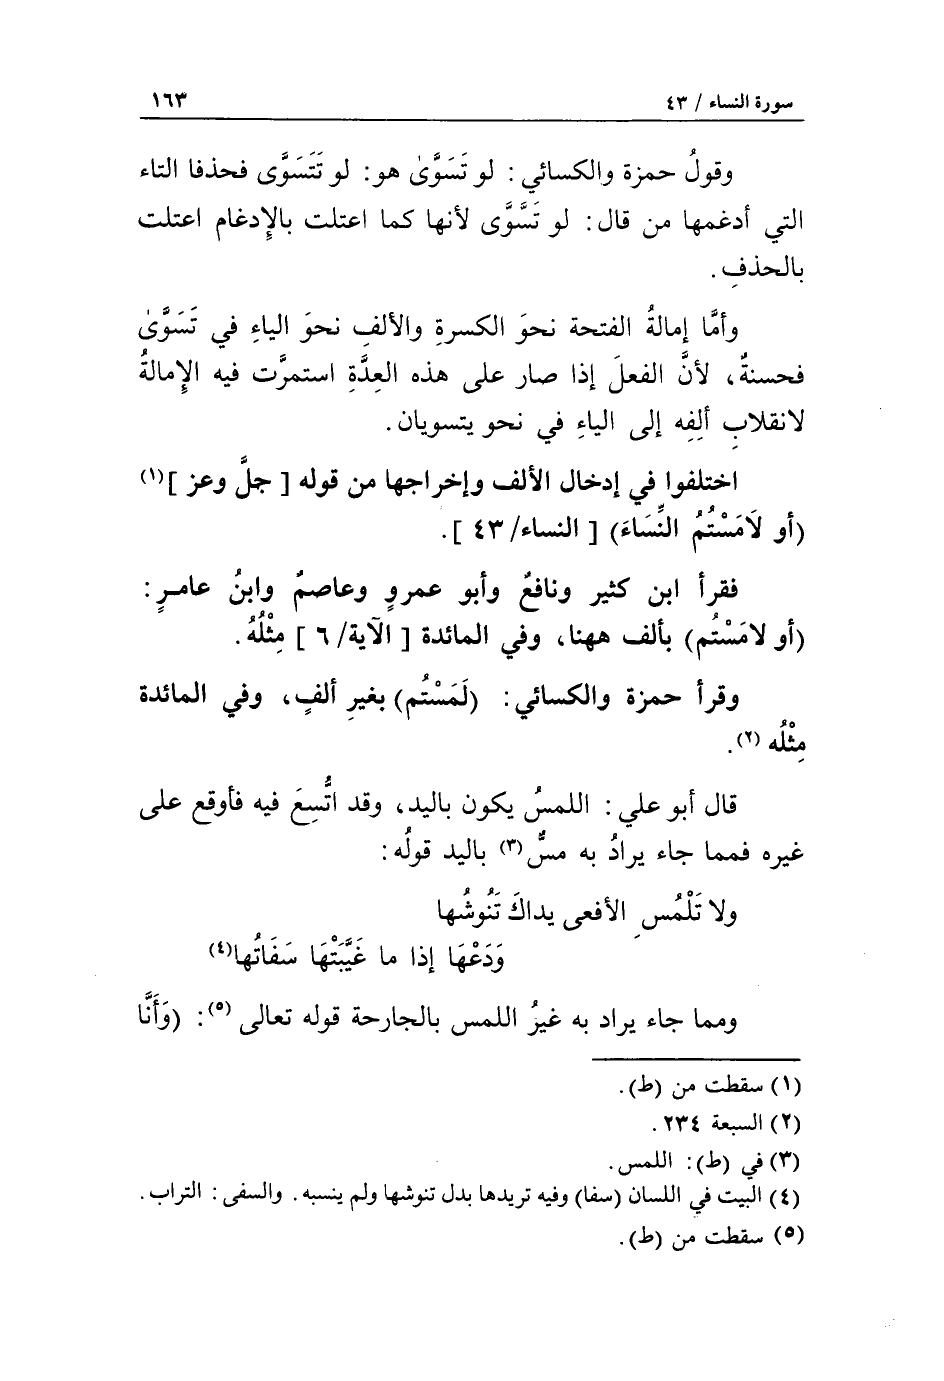 سورة النساء / ٤٣ ١٦٣
وقولُ حمزة والكسائي: لو تَسَوَّىٰ هو: لو تَتَسَوَّى فحذفا التاء
التي أدغمها من قال: لو تَسَّوَّى لأنها كما اعتلت بالإِدغام اعتلت
بالحذفِ.
وأمَّا إمالةُ الفتحة نحوَ الكسرةِ والألفِ نحوَ الياءِ في تَسَوَّىٰ
فحسنةٌ، لأنَّ الفعلَ إذا صار على هذه العِدَّةِ استمرَّت فيه الإِمالةُ
لانقلابِ ألِفِه إلى الياءِ في نحو يتسويان.
اختلفوا في إدخال الألف وإخراجها من قوله [ جلَّ وعز ](١)
(أو لَامَسْتُمُ النِّسَاءَ) [ النساء/ ٤٣ ].
فقرأ ابن كثير ونافعٌ وأبو عمروٍ وعاصمٌ وابنُ عامرٍ:
(أو لامَسْتُم) بألف ههنا، وفي المائدة [ الآية/ ٦ ] مِثْلُهُ.
وقرأ حمزة والكسائي: (لَمَسْتُم) بغيرِ ألفٍ، وفي المائدة
مِثْلُه (٢).
قال أبو علي: اللمسُ يكون باليد، وقد اتُّسِعَ فيه فأوقع على
غيره فمما جاء يرادُ به مسٌّ(٣) باليد قولُه:
ولا تَلْمُسِ الأفعى يداكَ تَنُوشُها
وَدَعْهَا إذا ما غَيَّبَتْهَا سَفَاتُها(٤)
ومما جاء يراد به غيرُ اللمس بالجارحة قوله تعالى (٥): (وَأَنَّا
(١) سقطت من (ط).
(٢) السبعة ٢٣٤.
(٣) في (ط): اللمس.
(٤) البيت في اللسان (سفا) وفيه تريدها بدل تنوشها ولم ينسبه. والسفى: التراب.
(٥) سقطت من (ط).